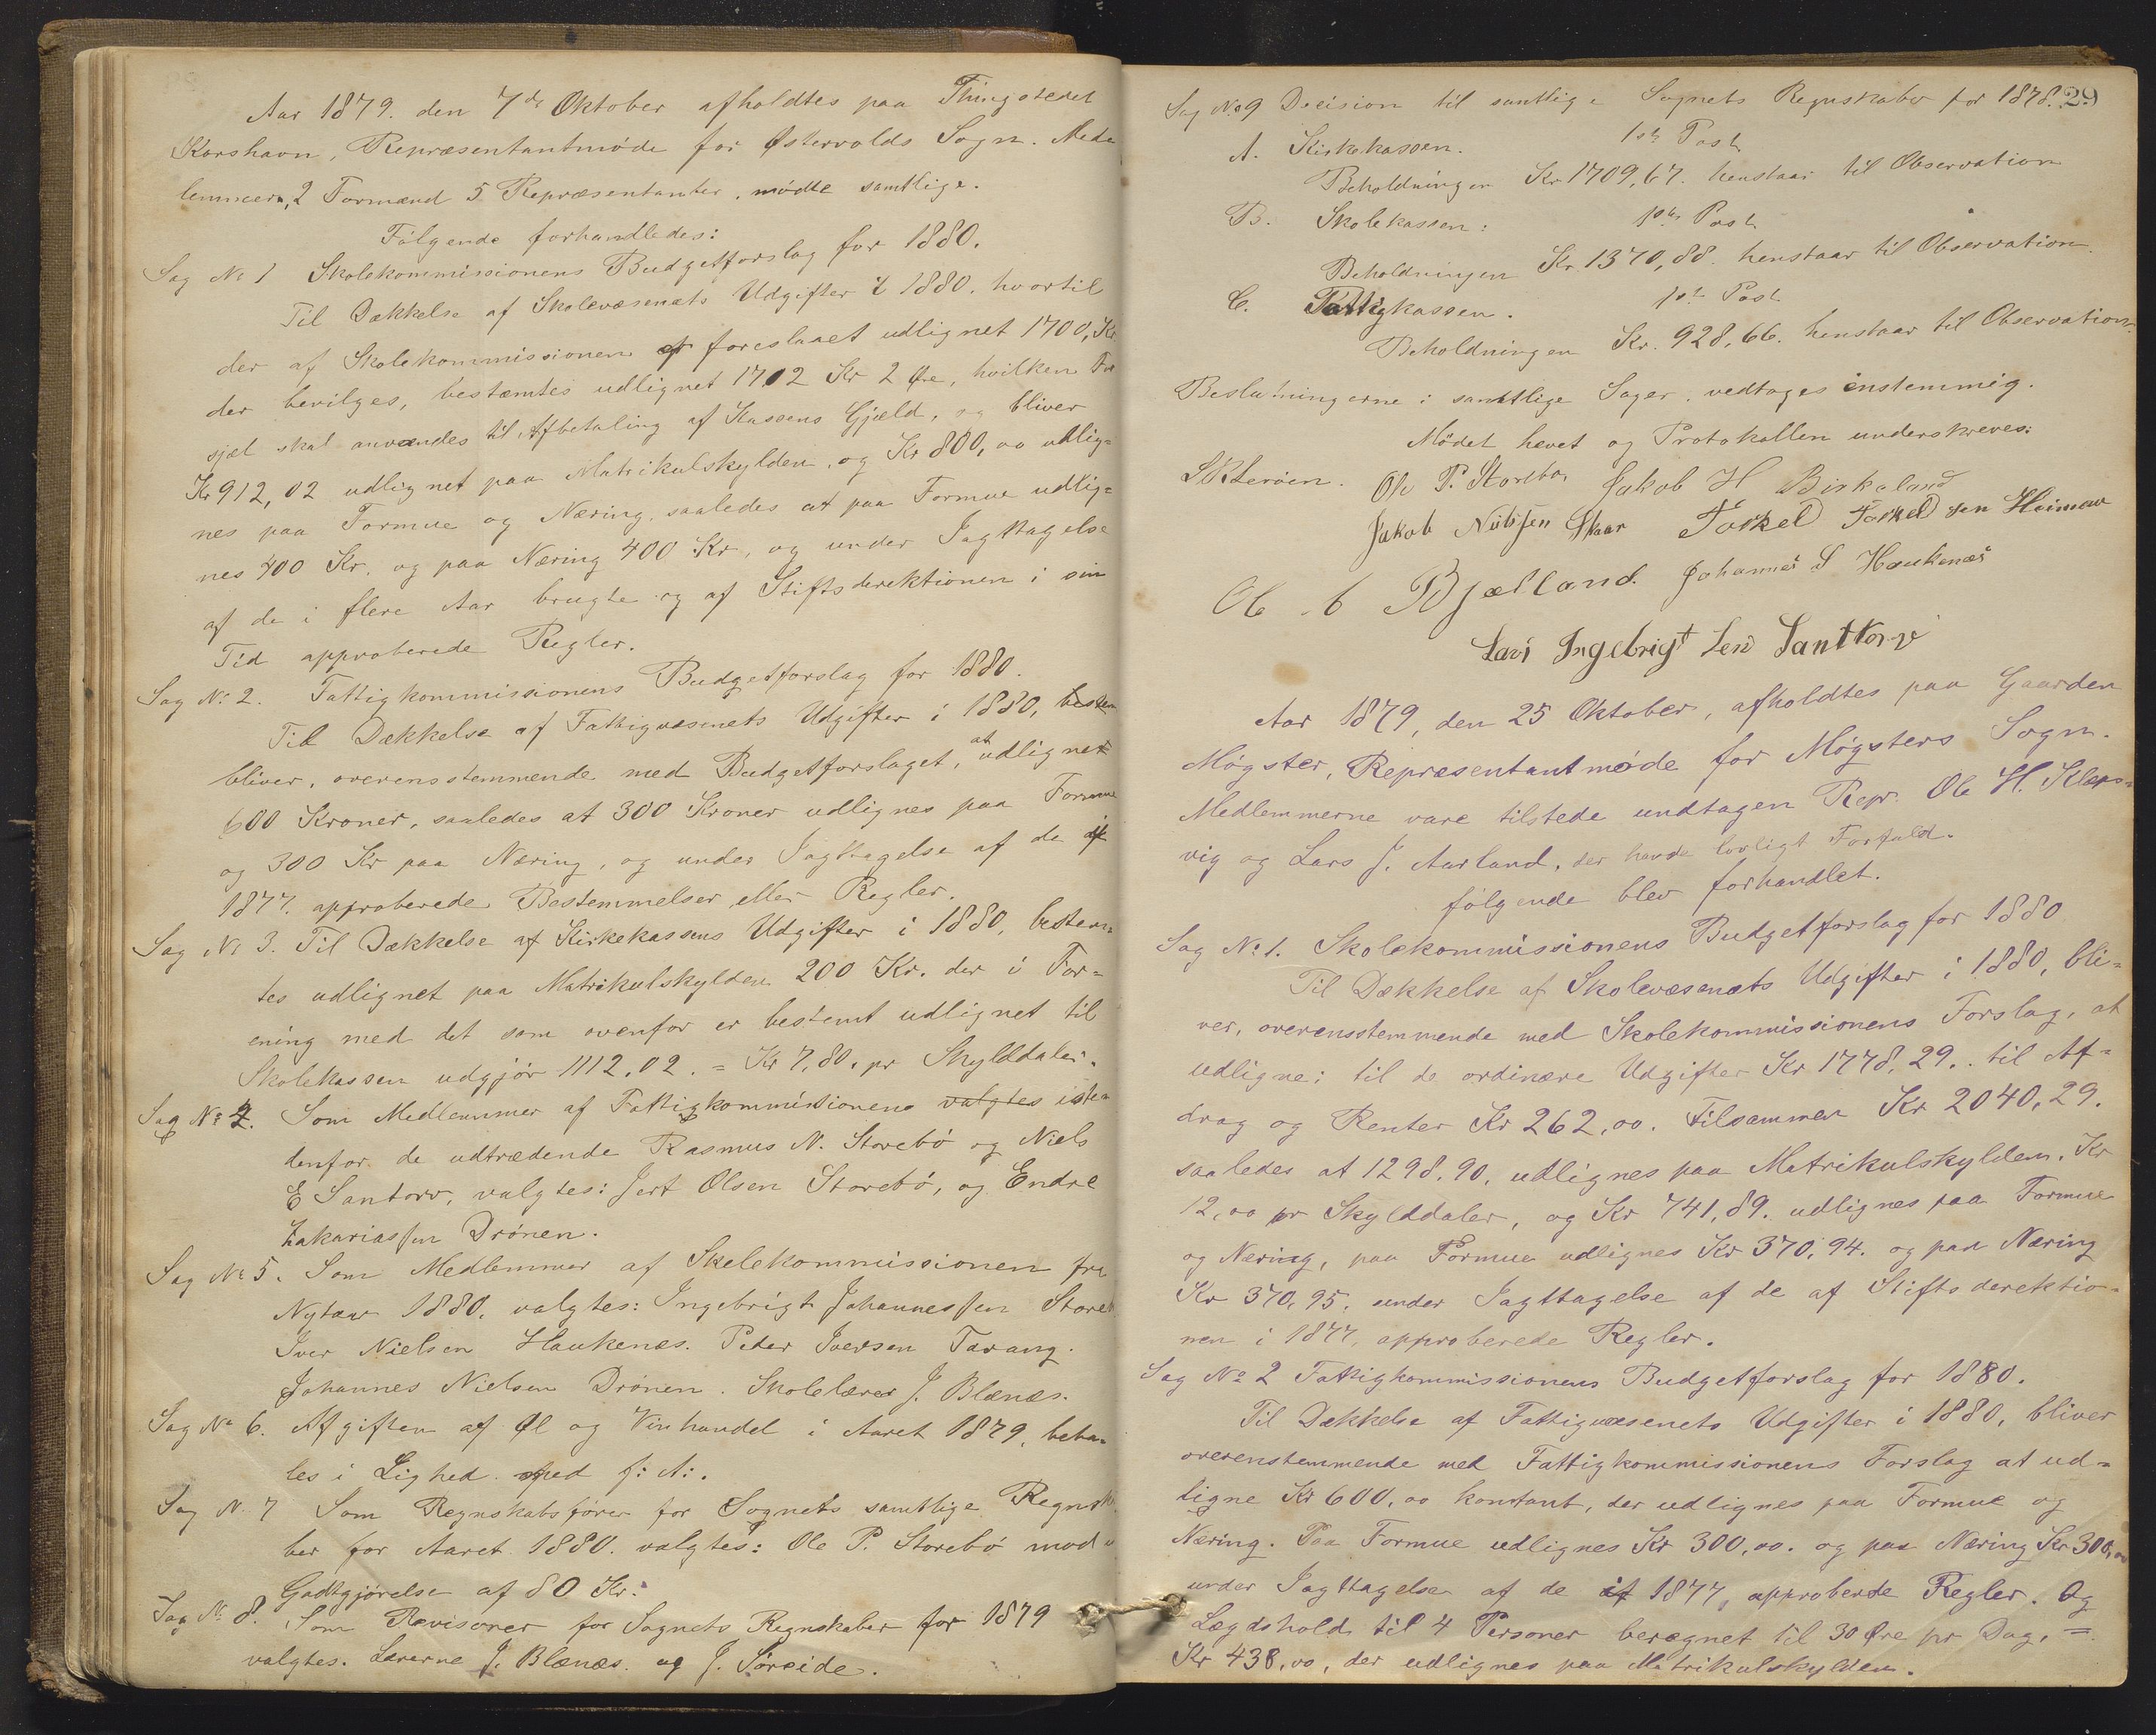 Aar 1879. den 7de Oktober afholdtes paa Thingstedet
Korshavn, Repræsentantmøde for Østervolds Sogn. Med-
lemmern, 2 Formænd 5 Repræsentanter, mødte samtlige.
Følgende forhandledes:
Sag No 1 Skolekommissionens Budgetforslag for 1880.
Til Dækkelse af Skolevæsenets Udgifter i 1880. hvortil
der af Skolekommissionen er foreslaaet udlignet 1700, Kr
der bevilges, bestæmtes udlignet 1702 Kr 2 Øre, hvilken
sjæl skal anvændes til Afbetaling af Kassens Gjæld, og bliver
Kr 912,02 udlignet paa Matrikulskylden, og Kr 800,00 udlig=
nes paa Formue og Næring, saaledes at paa Formue udlig=
nes 400 Kr. og paa Næring 400 Kr, og under Iagttagelse
af de i flere Aar brugte og af Stiftsderektionen i sin
Tid approberede Regler.
Sag No 2. Fattigkommissionens Budgetforslag for 1880.
Til Dækkelse af Fattigvæsenets Udgifter i 1880,
bliver, overensstemmende med Budgetforslaget, at udligne
600 Kroner, saaledes at 300 Kroner udlignes paa Formue
og 300 Kr paa Næring, og under Iagttagelse af de if
1877. approberede Bestemmelser eller Regler.
Sag No 3. Til Dækkelse af Kirkekassens Udgifter i 1880, bestem=
tes udlignet paa Matrikulskylden 200 Kr. der i For=
ening med det som ovenfor er bestemt udlignet til
Skolekassen udgjør 1112,02. = Kr 7,80. pr Skylddaler.
Sag No 4. Som Medlemmer af Fattigkommissionens valgtes iste
denfor de udtrædende Rasmus N. Storebø og Niels
E Santorv, valgtes: Jert Olsen Storebø, og Endre
Zakariassen Drønen.
Sag No 5. Som Medlemmer af Skolekommissionen fra
Nytaar 1880. valgtes: Ingebrigt Johannessen Store
Iver Nielsen Haukenæs. Peder Iversen Tarang.
Johannes Nielsen Drønen. Skolelærer J. Blænæs.
Sag No 6. Afgiften af Øl og Vinhandel i Aaret 1879, beta=
les i Lighed med f: A:.
Sag N. 7 Som Regnskabsfører for Sognets samtlige Regnska
ber for Aaret 1880. valgtes: Ole P. Storebø mod
Godtgjørelse af 80 Kr.
Sag No 8. Som Revisorer for Sognets Regnskaber for 1879
valgtes. Lærerne J. Blænæs og J. Søreide.
29
Sag No 9 Decision til samtlige Sognets Regnskaber for 1878.
A. Kirkekassen. 1ste Post
Beholdningen Kr 1709,67. henstaar til Observation
B. Skolekassen: 1ste Post
Beholdningen Kr. 1370,88. henstaar til Observation.
C. Fattigkassen. 1ste Post
Beholdningen Kr. 928,66. henstaar til Observation.
Beslutningerne i samtlige Sager, vedtoges énstemmig.
Mødet hevet og Protokollen underskreves:
Ole P. Storebø Jakob H Birkeland
Jakob Nilssen Skaar Torkel Torkelsen Heimar
Ole Bjælland. Johannes S Haukenæs
Lars Ingebrigtsen Santtorv
Aar 1879, den 25 Oktober, afholdtes paa Gaarden
Møgster, Repræsentantmøde for Møgsters Sogn.
Medlemmerne vare tilstede undtagen Repr. Ole H. Kleps=
vig og Lars J. Aurland, der havde lovligt Forfald.
følgende blev forhandlet.
Sag No 1. Skolekommissionens Budgetforslag for 1880
Til Dækkelse af Skolevæsenets Udgifter i 1880, bli=
ver, overensstemmende med Skolekommissionens Forslag, at
udligne: til de ordinære Udgifter Kr 1778,29.. til Af=
drag og Renter Kr 262,00. Tilsammen Kr 2040,29.
saaledes at 1298.90. udlignes paa Matrikulskylden. Kr
12,00 pr Skylddaler, og Kr 741,89. udlignes paa Formue
og Næring, paa Formue udlignes Kr 370,94. og paa Næring
Kr 370,95. under Iagttagelse af de af Stiftsderektio=
nen i 1877, approberede Regler.
Sag No 2 Fattigkommissionens Budgetforslag for 1880.
Til Dækkelse af Fattigvæsenets Udgifter i 1880, bliver
overenstemmende med Fattigkommissionens Forslag at ud=
ligne Kr 600,00 kontant, der udlignes paa Formue og
Næring. Paa Formue udlignes Kr 300,00. og paa Næring Kr 300,00
under Iagttagelse af de if 1877, approberde Regler. Og
Lægdshold til 4 Personer beregnet til 30 Øre pr Dag, =
Kr 438,00, der udlignes paa Matrikulskylden.